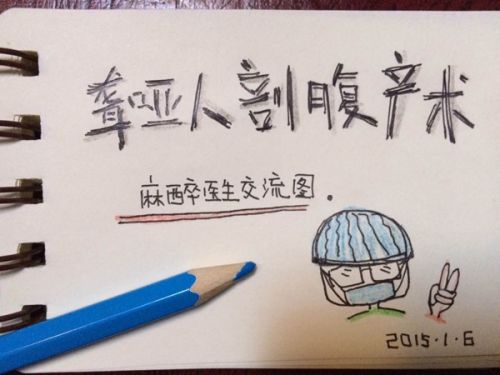 聋哑人剖腹产术
麻醉医生交流图.
2015.1.6